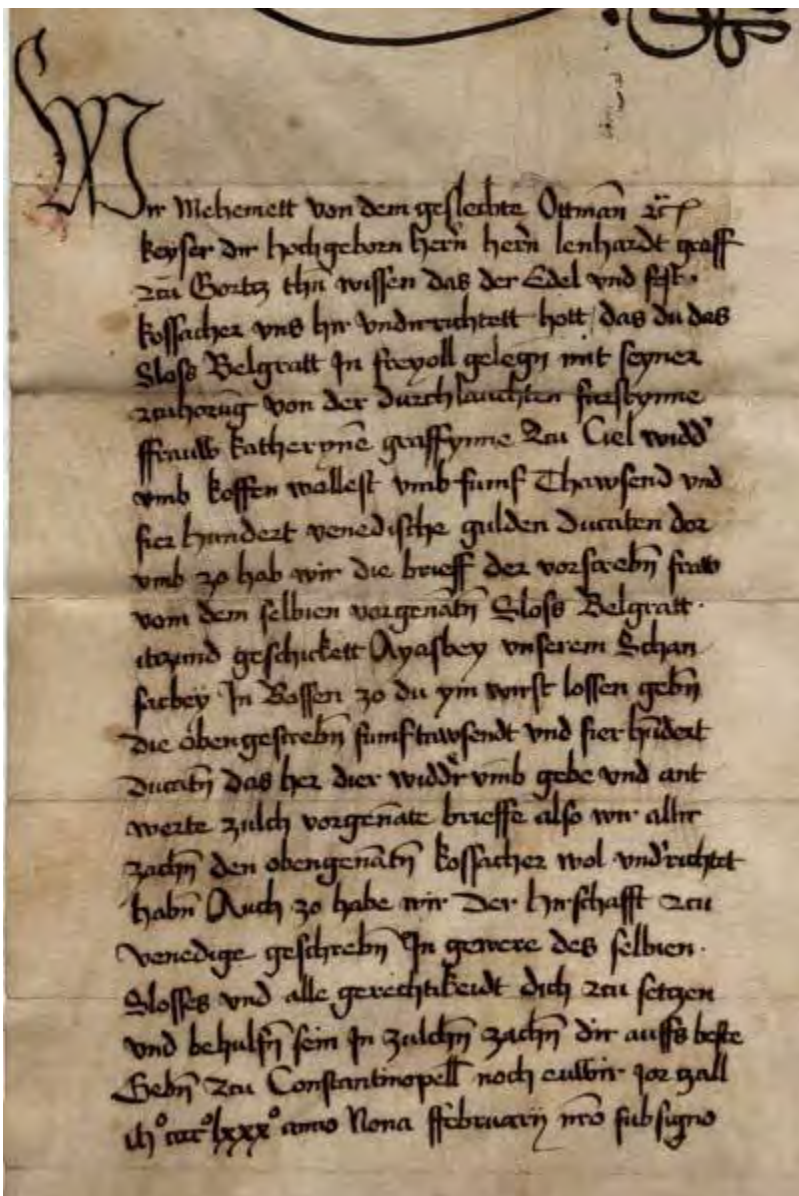 Wir Mehemett von dem geslechte Ottmān ꝛc̄
keyser dir hochgeborn hern̄ hern̄ lenhardt graff
zcu Gortz thū wissen das der Edel vnd fest
kossacher vns hir vnderrichtett hott das du das
Sloss Belgratt In freyoll gelegn̄ mit seyner
zcuhorūg von der durchlauchten furstynne
ffrauw katherynē graffynne Zcu Ciel widd'
vmb koffen wellest vmb funf Thawsend vnd
fier hundert venedische gulden Ducaten dor
vmb zo hab wir die brieff der vorscrebn̄ fraw
vom dem selbien vorgenātn̄ Sloss Belgratt
itzund geschickett Ayasbey vnserem Schan
sacbey In Bossen zo du ym wirst lossen gebn̄
die obengescrebn̄ funftawsendt vnd fier hūdert
Ducatn̄ das her dier widd'r vmb gebe vnd ant
werte zulch vorgenāte brieffe also wir allir
zachn̄ den obengenātn̄ kossacher wol vnd'richtet
habn̄ Auch zo habe wir Der hirschafft zcu
venedige geschrebn̄ In gewere des selbien
Slosses vnd alle gerechtikeidt dich zcu setzen
vnd behulfn̄ sein In zulchn̄ zachn̄ dir auffs beste
Gebn̄ Zcu Constantinopell noch euwir jor tzall
lxxxº anno Nona ffebruarij nr̄o sub signo